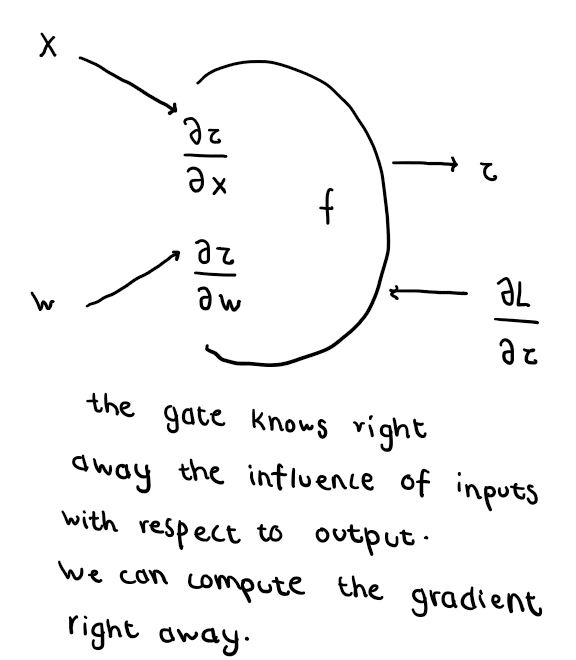 X
∂z
∂x
f
z
∂z
∂w
w
∂L
∂z
the gate knows right
away the influence of inputs
with respect to output.
We can compute the gradient
right away.